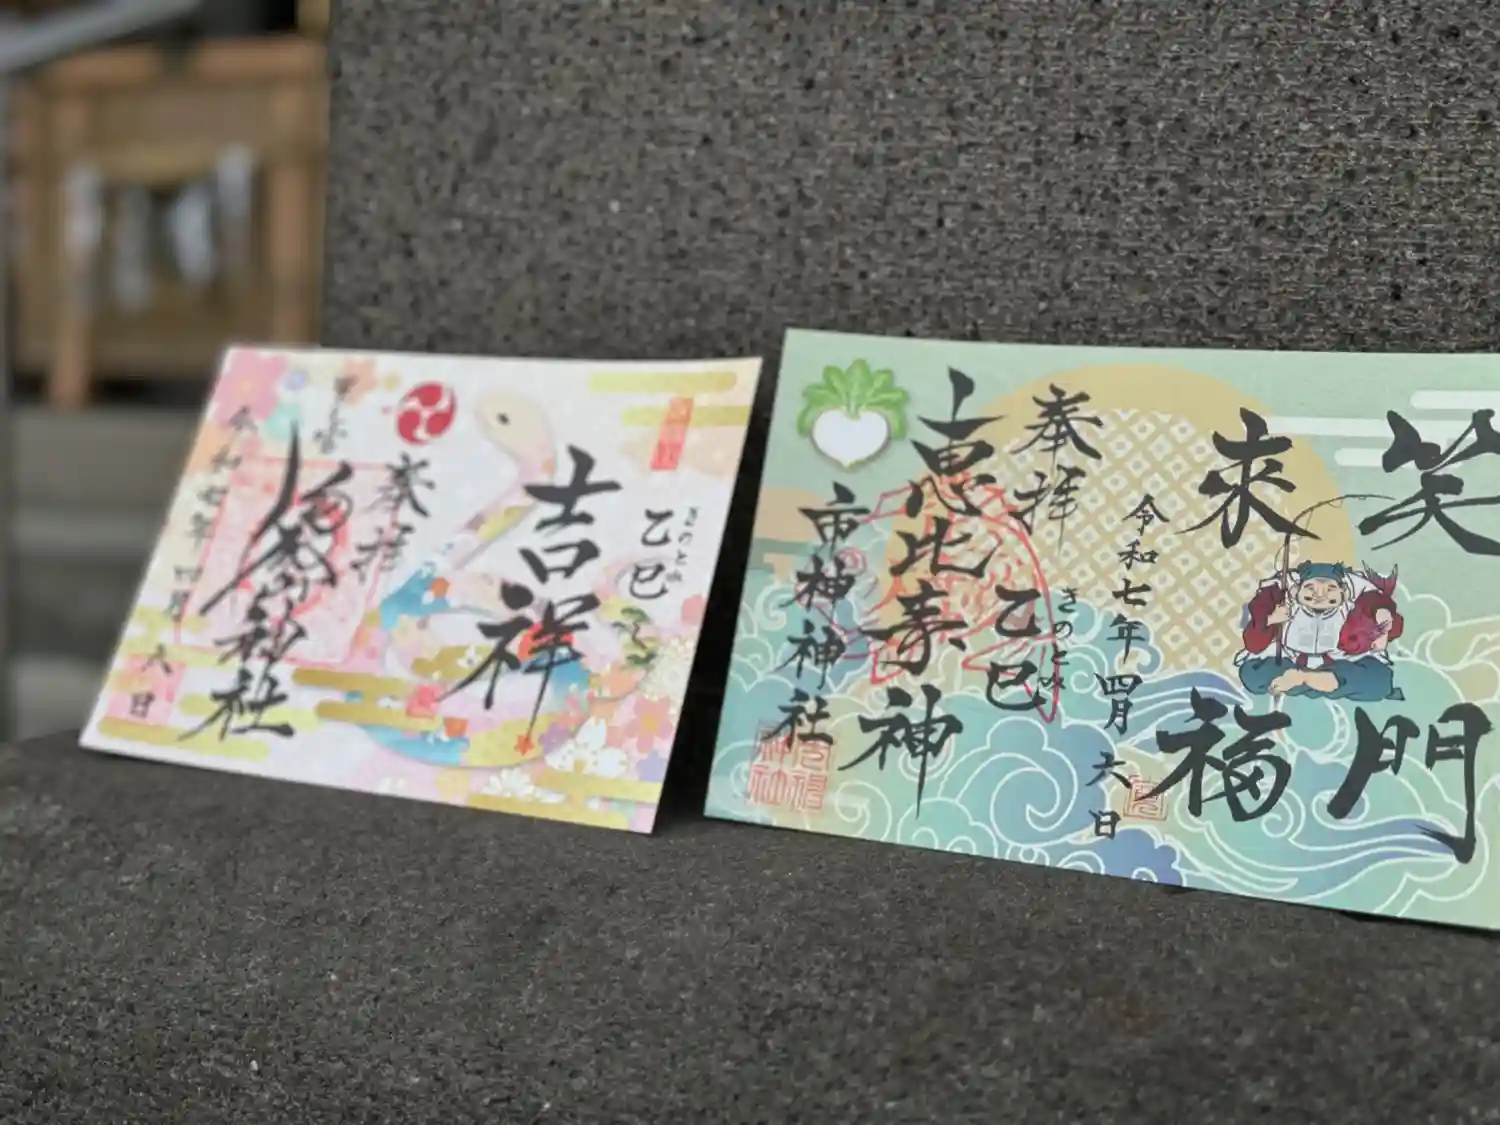 乙巳
きのとみ
吉祥
奉拝
神社
令和七年四月六日
笑門
来福
令和七年四月六日
乙巳
きのとみ
奉拝
恵比寿神
市神神社